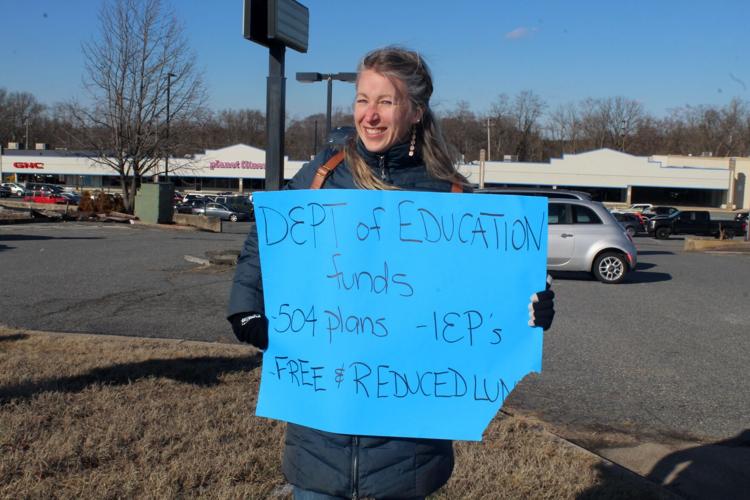 GNC
planet fitness
DEPT of EDUCATION
funds
-504 plans -IEP's
-FREE & REDUCED LUN